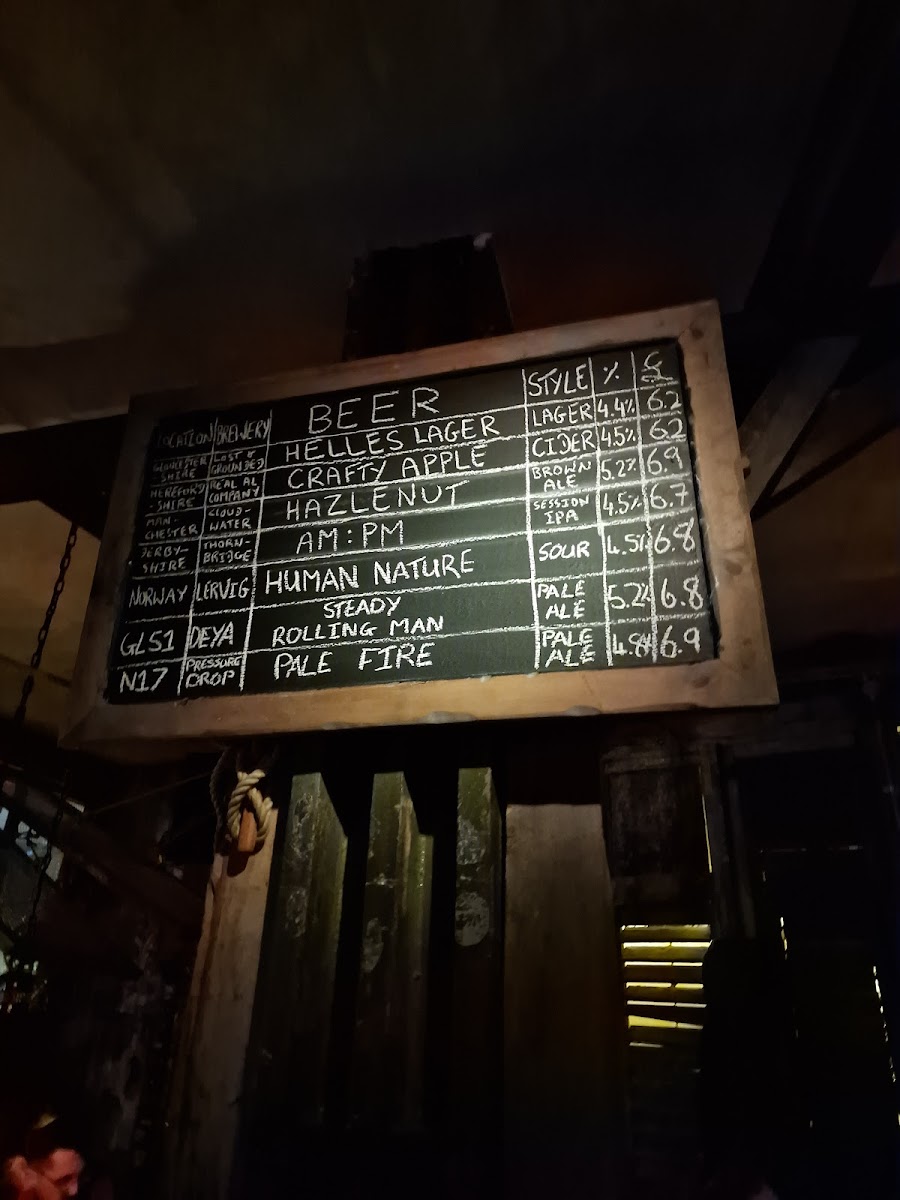 LOCATION BREWERY BEER STYLE % £
GLOUCESTER -SHIRE LOST & GROUNDED HELLES LAGER LAGER 4.4% 6.2
HEREFORD -SHIRE REAL AL COMPANY CRAFTY APPLE CIDER 4.5% 6.2
MAN- CHESTER CLOUD- WATER HAZLENUT BROWN ALE 5.2% 6.9
DERBY- SHIRE THORN- BRIDGE AM:PM SESSION IPA 4.5% 6.7
NORWAY LERVIG HUMAN NATURE SOUR 4.5% 6.8
GL51 DEYA STEADY ROLLING MAN PALE ALE 5.2% 6.8
N17 PRESSURE DROP PALE FIRE PALE ALE 4.8% 6.9